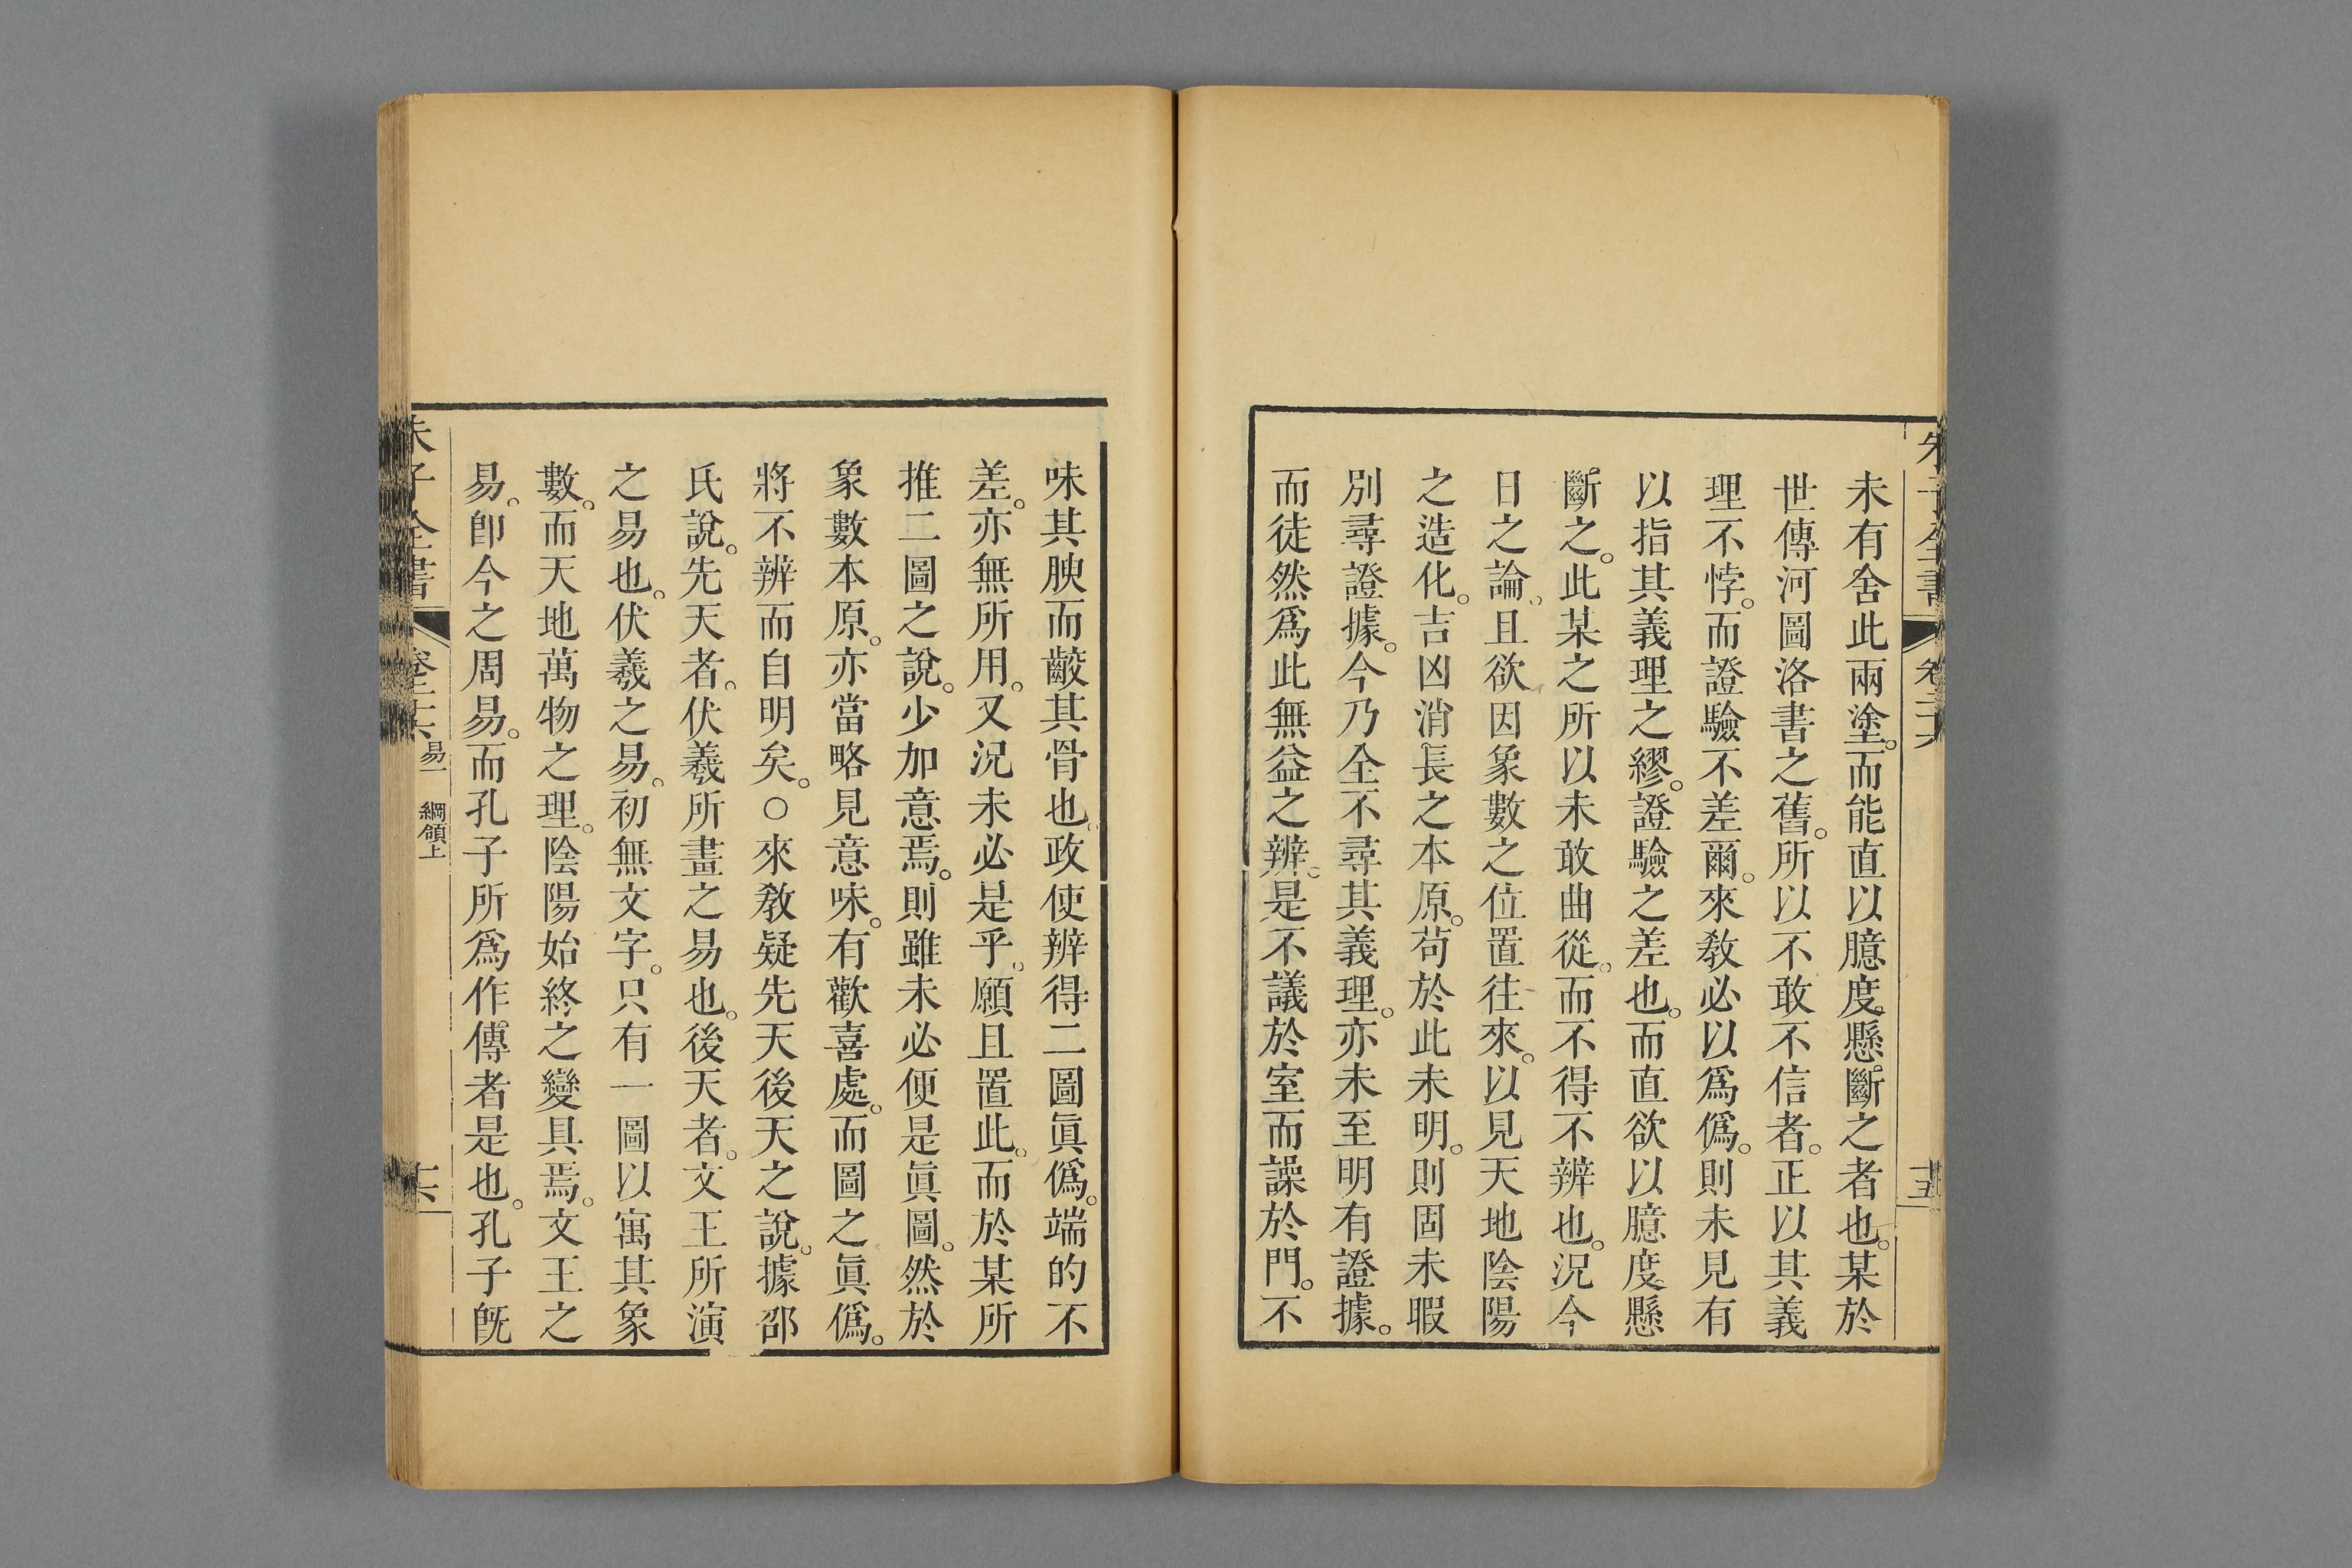 朱子全書 卷二十六 十五
未有舍此兩塗。而能直以臆度。懸斷之者也。某於
世傳河圖洛書之舊。所以不敢不信者。正以其義
理不悖。而證驗不差爾。來敎必以爲僞。則未見有
以指其義理之繆。證驗之差也。而直欲以臆度懸
斷之。此某之所以未敢曲從。而不得不辨也。況今
日之論。且欲因象數之位置往來。以見天地陰陽
之造化。吉凶消長之本原。苟於此未明。則固未暇
別尋證據。今乃全不尋其義理。亦未至明有證據。
而徒然爲此無益之辨。是不議於室而譟於門。不
味其腴而齩其骨也。政使辨得二圖眞僞。端的不
差。亦無所用。又況未必是乎。願且置此。而於某所
推二圖之說。少加意焉。則雖未必便是眞圖。然於
象數本原。亦當略見意味。有歡喜處。而圖之眞僞。
將不辨而自明矣。○來敎疑先天後天之說。據邵
氏說。先天者。伏羲所畫之易也。後天者。文王所演
之易也。伏羲之易。初無文字。只有一圖以寓其象
數。而天地萬物之理。陰陽始終之變具焉。文王之
易。卽今之周易。而孔子所爲作傳者是也。孔子旣
朱子全書 卷二十六 易一 綱領上 十六